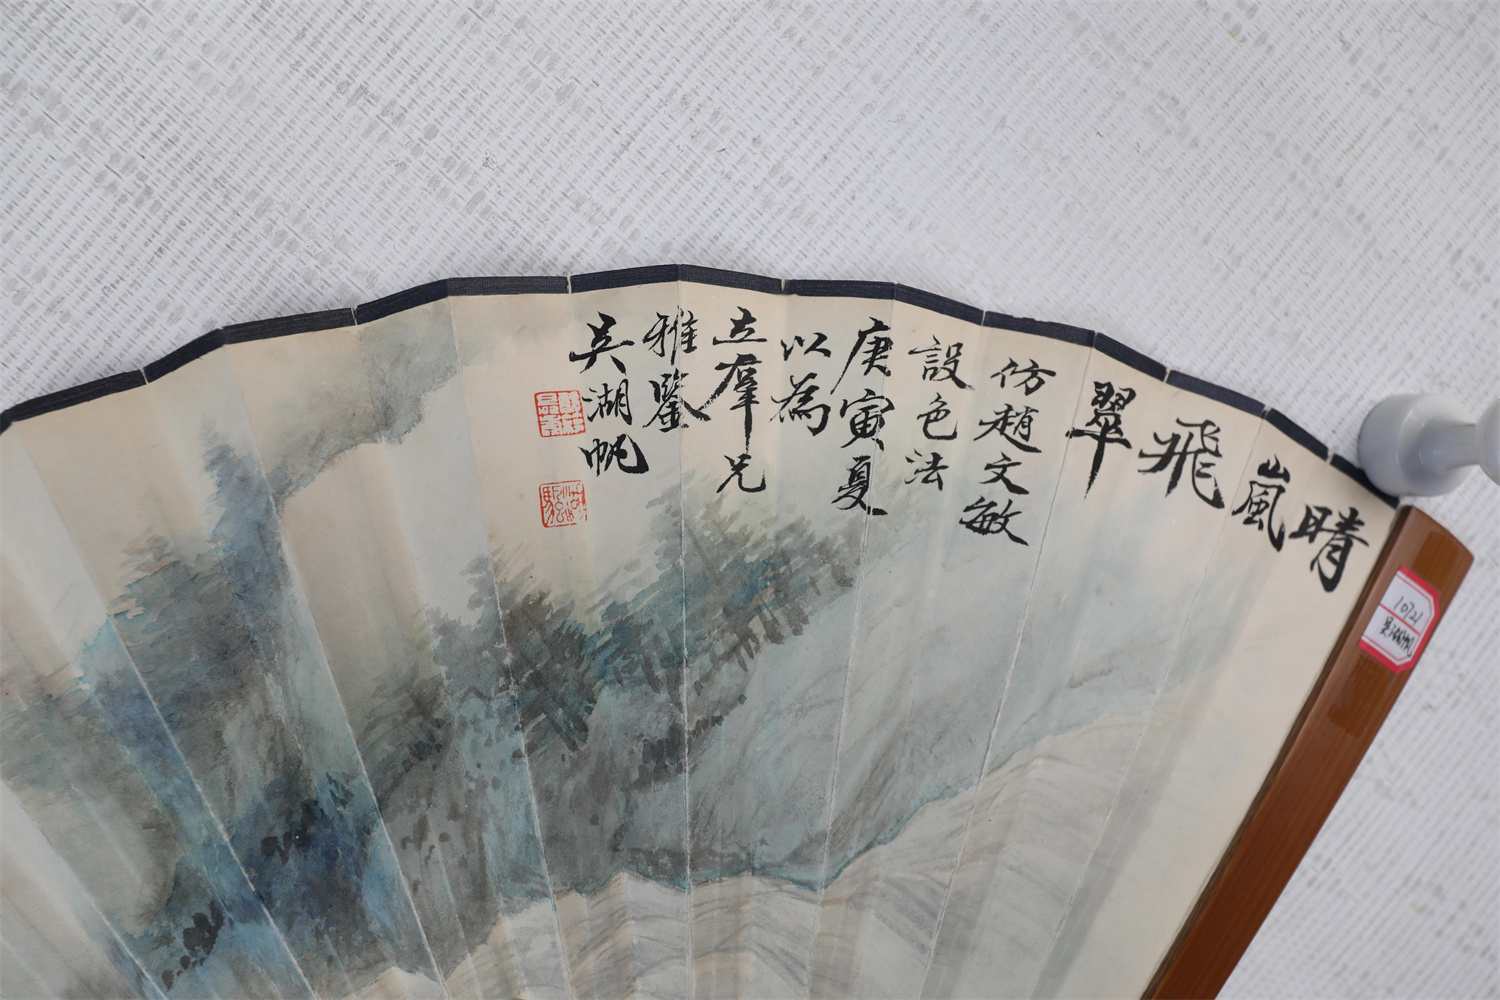 晴嵐飛翠
仿趙文敏
設色法
庚寅夏
以為
立羣兄
雅鑒
吳湖帆
10721
吴湖帆